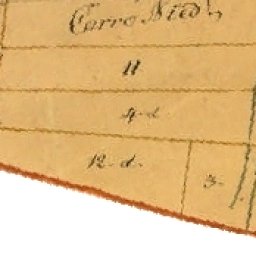 Cerro Nied
11
4-d
12-d.
3-